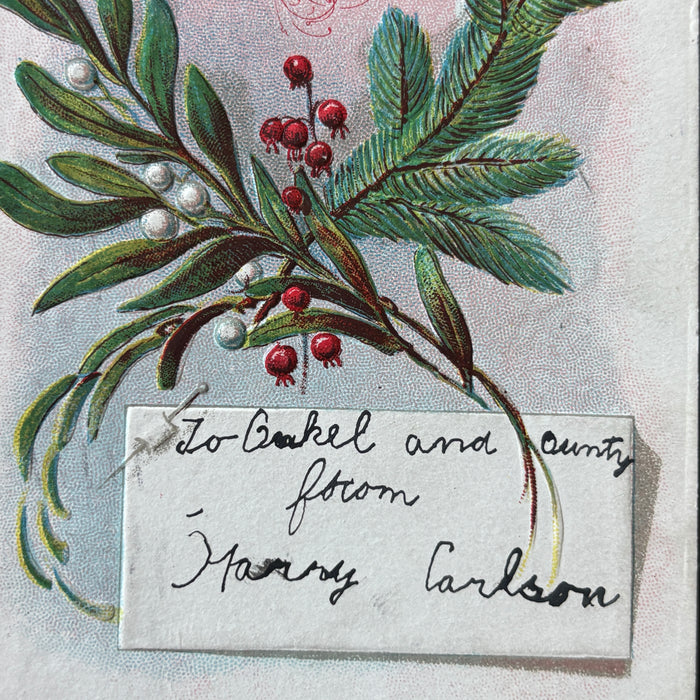 To Onkel and ounty
from
Harry Carlson